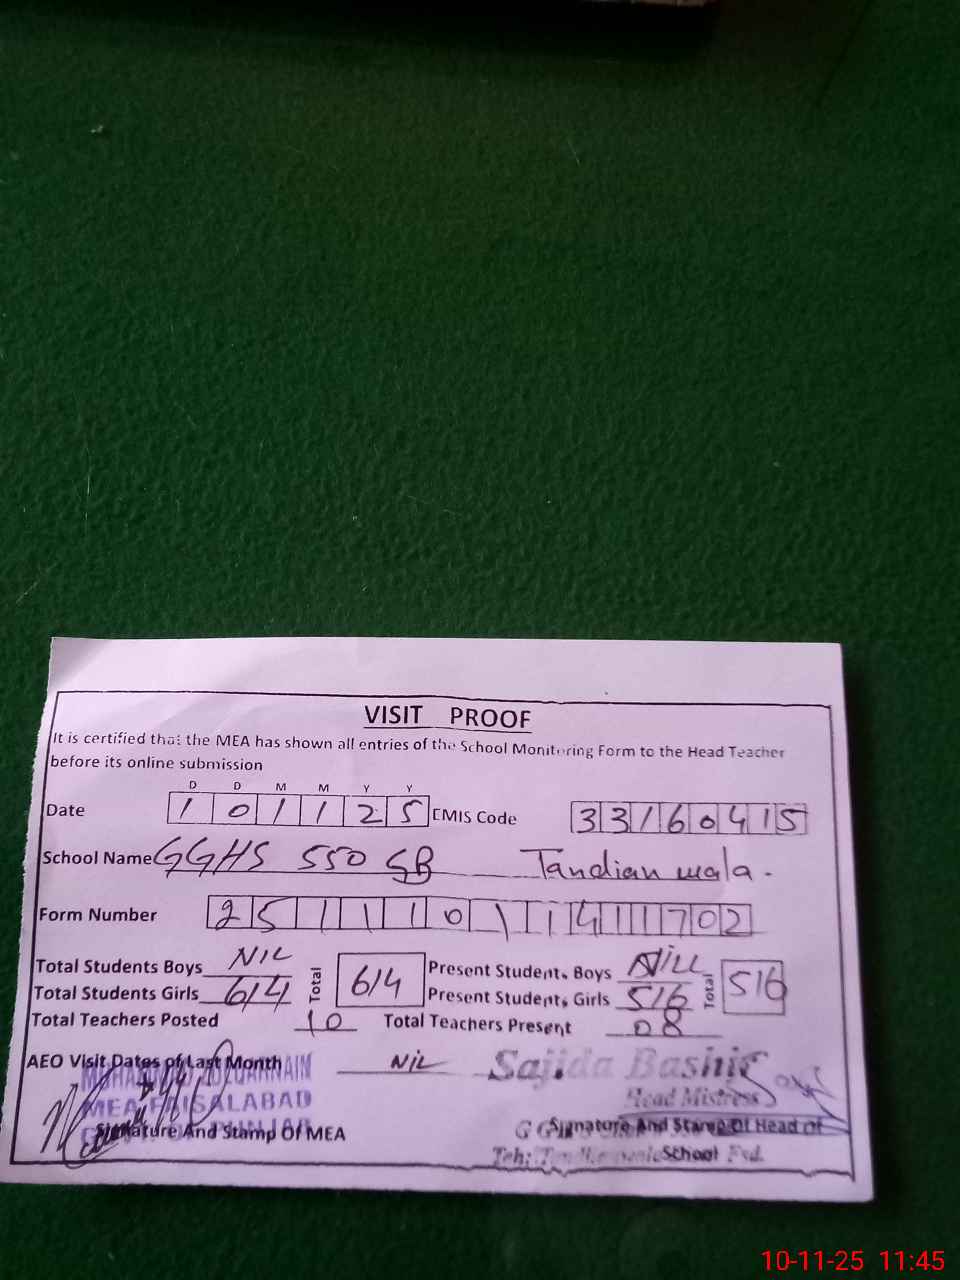 VISIT PROOF
It is certified that the MEA has shown all entries of the School Monitoring Form to the Head Teacher
before its online submission
D D M M Y Y
Date 1 0 1 1 2 5 EMIS Code 3 3 1 6 0 4 1 5
School Name GGHS 550 GB Tandianwala.
Form Number 2 5 1 1 1 0 1 1 4 1 1 7 0 2
Total Students Boys NIL Total 614 Present Students Boys NiLL Total 516
Total Students Girls 614 Present Students Girls 516
Total Teachers Posted 10 Total Teachers Present 08
AEO Visit Dates of Last Month NiL
MEA FAISALABAD
Signature And Stamp Of MEA
Sajida Bashir
Head Mistress
Signature And Stamp Of Head Of
School
Teh: Fsd.
10-11-25 11:45